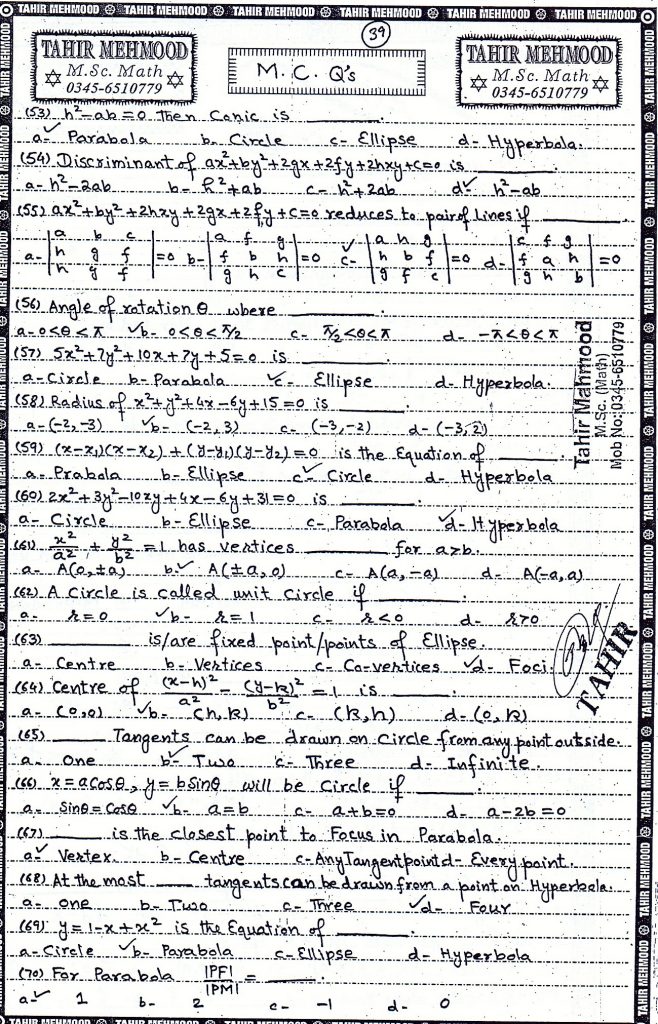 TAHIR MEHMOOD TAHIR MEHMOOD TAHIR MEHMOOD TAHIR MEHMOOD TAHIR MEHMOOD TAHIR MEHMOOD
39
TAHIR MEHMOOD
M.Sc. Math
0345-6510779
M.C.Q's
TAHIR MEHMOOD
M.Sc. Math
0345-6510779
(53) h²-ab=0 Then Conic is ______
a-✓ Parabola b- Circle c- Ellipse d- Hyperbola.
(54) Discriminant of ax²+by²+2gx+2fy+2hxy+c=0 is ______
a- h²-2ab b- h²+ab c- h²+2ab d✓ h²-ab
(55) ax²+by²+2hxy+2gx+2fy+c=0 reduces to pair of Lines if ______
a- |a b c; h g f; h g f|=0 b- |a f g; f b h; g h c|=0 c-✓ |a h g; h b f; g f c|=0 d- |c f g; f a h; g h b|=0
(56) Angle of rotation θ where ______
a- 0<θ<π ✓b- 0<θ<π/2 c- π/2<θ<π d- -π<θ<π
(57) 5x²+7y²+10x+7y+5=0 is ______
a- Circle b- Parabola ✓c- Ellipse d- Hyperbola.
(58) Radius of x²+y²+4x-6y+15=0 is ______
a- (-2,-3) ✓b- (-2,3) c- (-3,-2) d- (-3,2)
(59) (x-x₁)(x-x₂)+(y-y₁)(y-y₂)=0 is the Equation of ______
a- Prabola b- Ellipse c-✓ Circle d- Hyperbola
(60) 2x²+3y²-10xy+4x-6y+31=0 is ______
a- Circle b- Ellipse c- Parabola ✓d- Hyperbola
(61) x²/a² + y²/b² = 1 has vertices ______ for a>b.
a- A(0,±a) b-✓ A(±a,0) c- A(a,-a) d- A(-a,a)
(62) A circle is called unit Circle if ______
a- r=0 ✓b- r=1 c- r<0 d- r>0
(63) ______ is/are fixed point/points of Ellipse
a- Centre b- Vertices c- Co-vertices ✓d- Foci.
(64) Centre of (x-h)²/a² - (y-k)²/b² = 1 is ______
a- (0,0) ✓b- (h,k) c- (k,h) d- (0,k)
(65) ______ Tangents can be drawn on Circle from any point outside.
a- One b-✓ Two c- Three d- Infinite.
(66) x=acosθ, y=bSinθ will be Circle if ______
a- Sinθ=Cosθ ✓b- a=b c- a+b=0 d- a-2b=0
(67) ______ is the closest point to Focus in Parabola.
a-✓ Vertex b- Centre c- Any Tangent point d- Every point.
(68) At the most ______ tangents can be drawn from a point on Hyperbola.
a- One b- Two c- Three ✓d- Four
(69) y=1-x+x² is the Equation of ______
a- Circle ✓b- Parabola c- Ellipse d- Hyperbola
(70) For Parabola |PF|/|PM| = ______.
a-✓ 1 b- 2 c- -1 d- 0
Tahir Mahmood
M.Sc. (Math)
Mob No: 0345-6510779
TAHIR